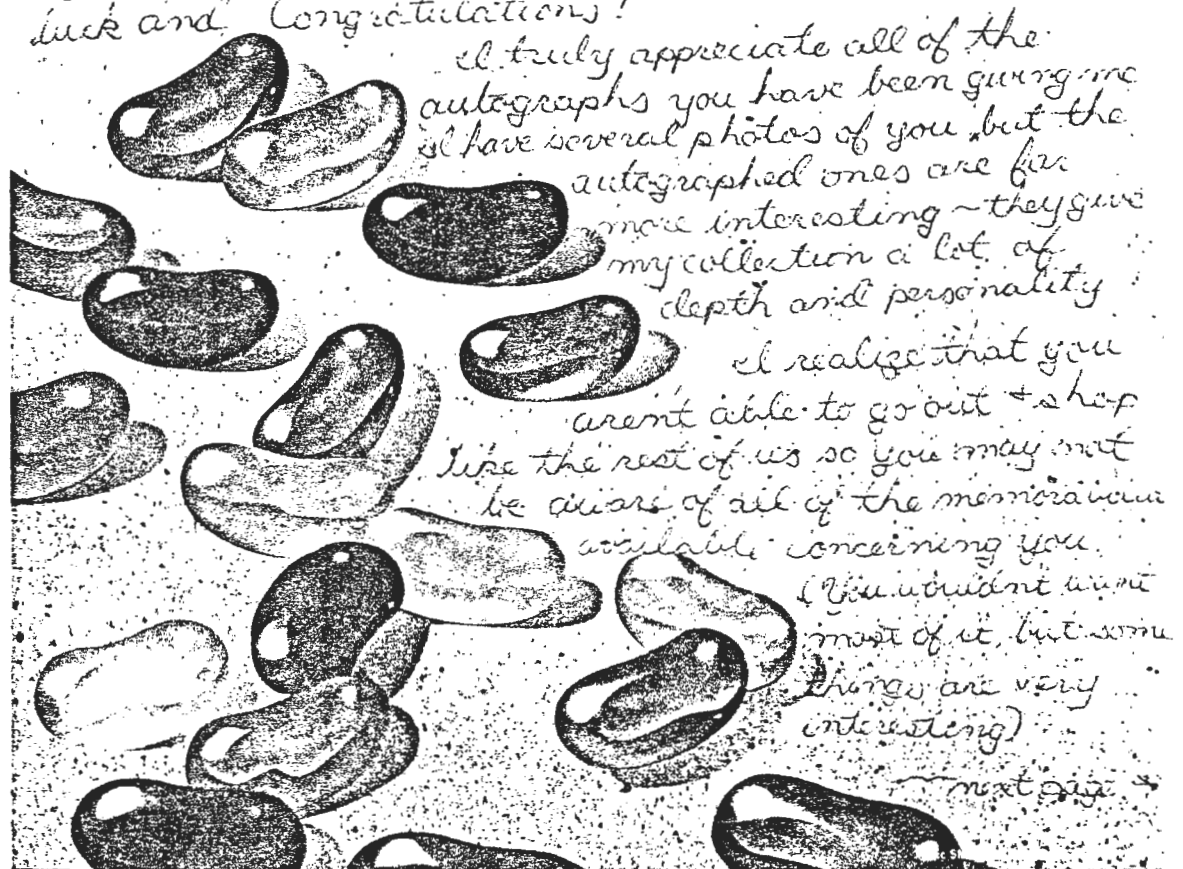 luck and Congratulations!
I truly appreciate all of the
autographs you have been giving me
I have several photos of you but the
autographed ones are far
more interesting ~ they give
my collection a lot of
depth and personality
I realize that you
arent able to go out + shop
like the rest of us so you may not
be aware of all of the memorabilia
available concerning you.
(You wouldnt want
most of it, but some
things are very
interesting)
next page →